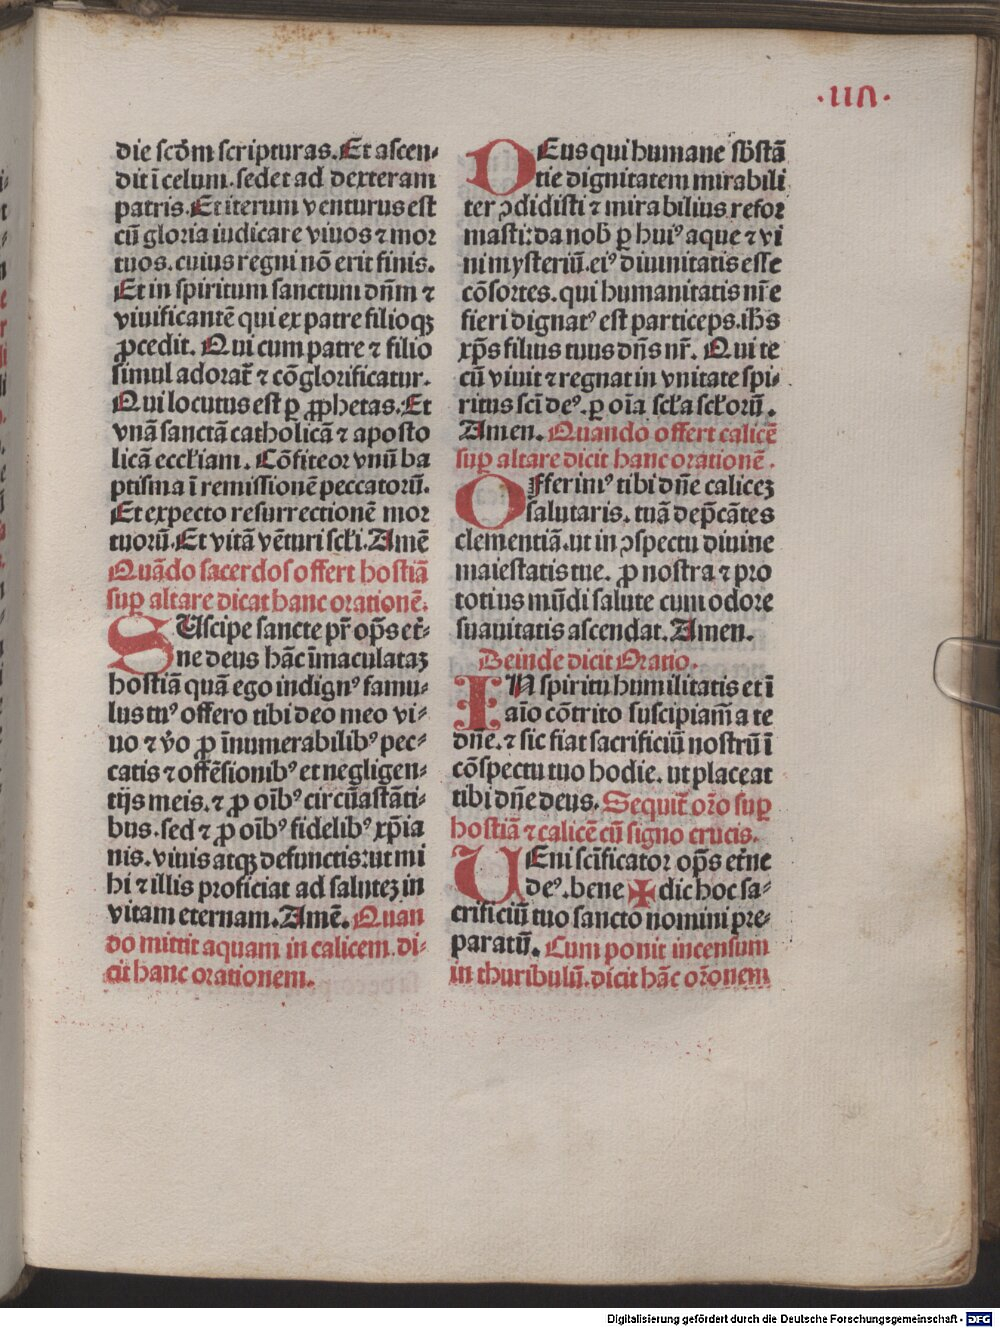 ·IIII·
die scďm scripturas. Et ascen⸗
dit ī celum. sedet ad dexteram
patris. Et iterum venturus est
cū gloria iudicare viuos ⁊ mor
tuos. cuius regni nō erit finis.
Et in spiritum sanctum dñm ⁊
viuificantē qui ex patre filioqꝫ
ꝓcedit. Qui cum patre ⁊ filio
simul adorat̄ ⁊ cōglorificatur.
Qui locutus est ꝑ ꝓphetas. Et
vnā sanctā catholicā ⁊ aposto
licā eccl̄iam. Cōfiteor vnū ba
ptisma ī remissionē peccatorū.
Et expecto resurrectionē mor
tuorū. Et vitā vēturi scl̄i. Amē
Quādo sacerdos offert hostiā
suꝑ altare dicat hanc orationē.
SUscipe sancte pr̄ ops̄ et̄⸗
ne deus hāc īmaculataꝫ
hostiā quā ego indignꝰ famu⸗
lus tuꝰ offero tibi deo meo vi⸗
uo ⁊ v̄o ꝓ īnumerabilibꝰ pec⸗
catis ⁊ offēsionibꝰ et negligen⸗
tijs meis. ⁊ ꝓ oībꝰ circūastāti⸗
bus. sed ⁊ ꝓ oībꝰ fidelibꝰ xp̄ia
nis. viuis atqꝫ defunctis: ut mi
hi ⁊ illis proficiat ad saluteꝫ in
vitam eternam. Amē. Quan
do mittit aquam in calicem. di⸗
cit hanc orationem.
DEus qui humane sb̄stā
tie dignitatem mirabili
ter ꝯdidisti ⁊ mirabilius refor
masti: da nob̄ ꝑ huiꝰ aque ⁊ vi
ni mysteriū. eiꝰ diuinitatis esse
cōsortes. qui humanitatis nr̄e
fieri dignatꝰ est particeps. ih̄s
xp̄s filius tuus dñs nr̄. Qui te
cū viuit ⁊ regnat in vnitate spi⸗
ritus scī deꝰ. ꝑ oīa scl̄a scl̄orū.
Amen. Quando offert calicē
suꝑ altare dicit hanc orationē.
OFferimꝰ tibi dñe caliceꝫ
salutaris. tuā dep̄cātes
clementiā. ut in ꝯspectu diuine
maiestatis tue. ꝓ nostra ⁊ pro
totius mūdi salute cum odore
suauitatis ascendat. Amen.
Deinde dicit Oratio.
IN spiritu humilitatis et ī
aīo cōtrito suscipiam̄ a te
dñe. ⁊ sic fiat sacrificiū nostrū ī
cōspectu tuo hodie. ut placeat
tibi dñe deus. Sequit̄ or̄o suꝑ
hostiā ⁊ calicē cū signo crucis.
UEni scīficator ops̄ et̄ne
deꝰ. bene ✠ dic hoc sa⸗
crificiū tuo sancto nomini pre⸗
paratū. Cum ponit incensum
in thuribulū. dicit hāc or̄onem
Digitalisierung gefördert durch die Deutsche Forschungsgemeinschaft - DFG